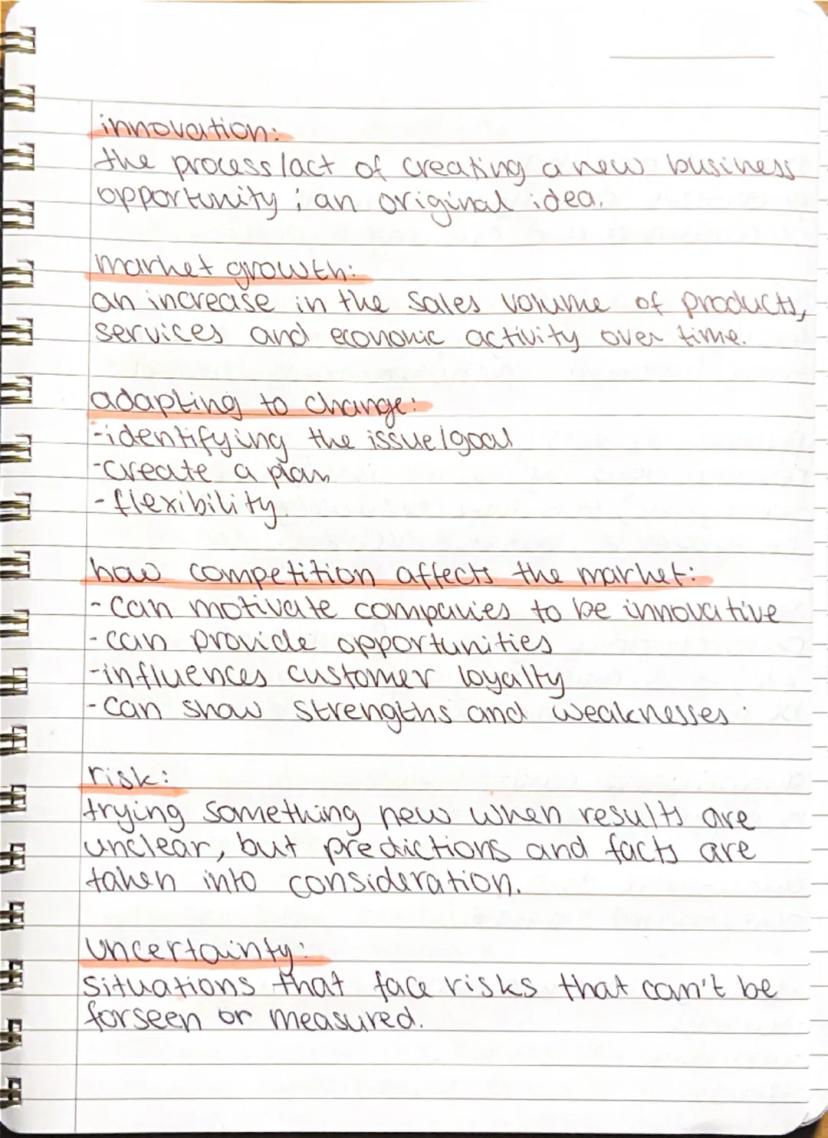 innovation:
the process/act of creating a new business
opportunity ; an original idea.
market growth:
an increase in the sales volume of products,
services and economic activity over time.
adapting to change:
-identifying the issue/goal
-create a plan
-flexibility
how competition affects the market:
-can motivate companies to be innovative
-can provide opportunities
-influences customer loyalty
-can show strengths and weaknesses.
risk:
trying something new when results are
unclear, but predictions and facts are
taken into consideration.
uncertainty:
situations that face risks that can't be
forseen or measured.